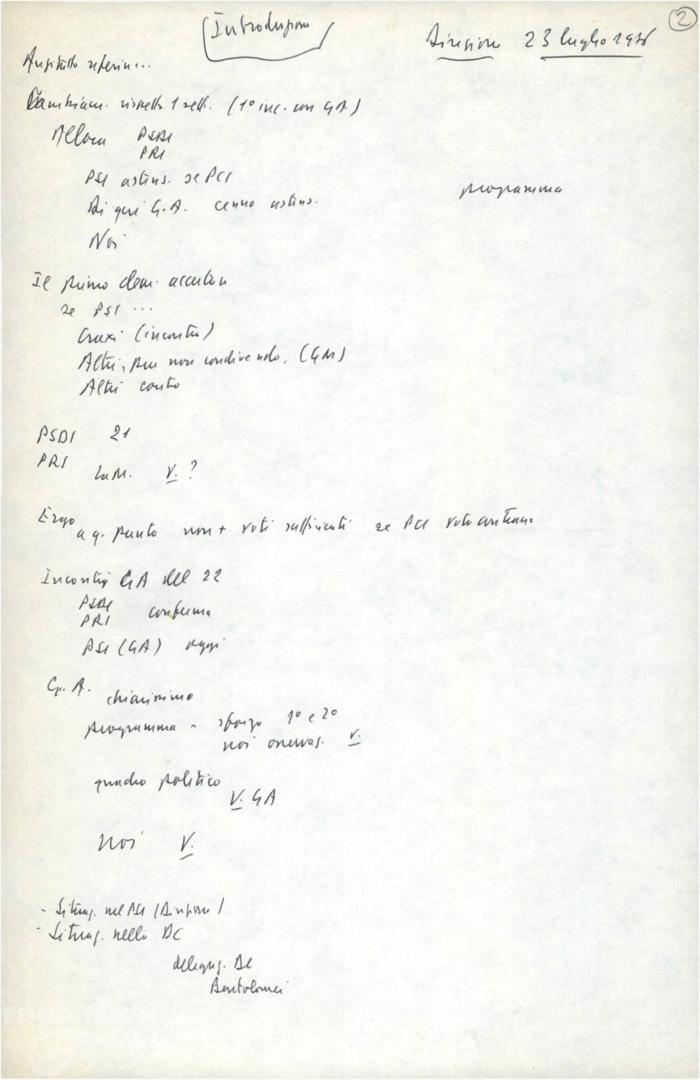 Introduzione
Direzione 23 luglio 1976
2
Anzitutto riferire...
Cambiam. rispetto 1 sett. (1° inc. con GA)
Allora PSDI
PRI
PSI astens. se PCI
Di qui G.A. cenno astens.
programma
Noi
Il primo dem. accertare
se PSI ...
Craxi (incontro)
Altri, pur non condividendo, (GM)
Altri contro
PSDI 21
PRI
LaM. V. ?
Ergo
a q. punto non + voti sufficienti se PCI voto contrario
Incontri GA del 22
PSDI
PRI conferma
PSI (GA) oggi
G. A. chiarissimo
programma - sforzo 1° e 2°
noi osservaz. V.
quadro politico
V. GA
Noi V.
- Situaz. nel PSI (Direzione)
- Situaz. nella DC
delegaz. De
Bartolomei